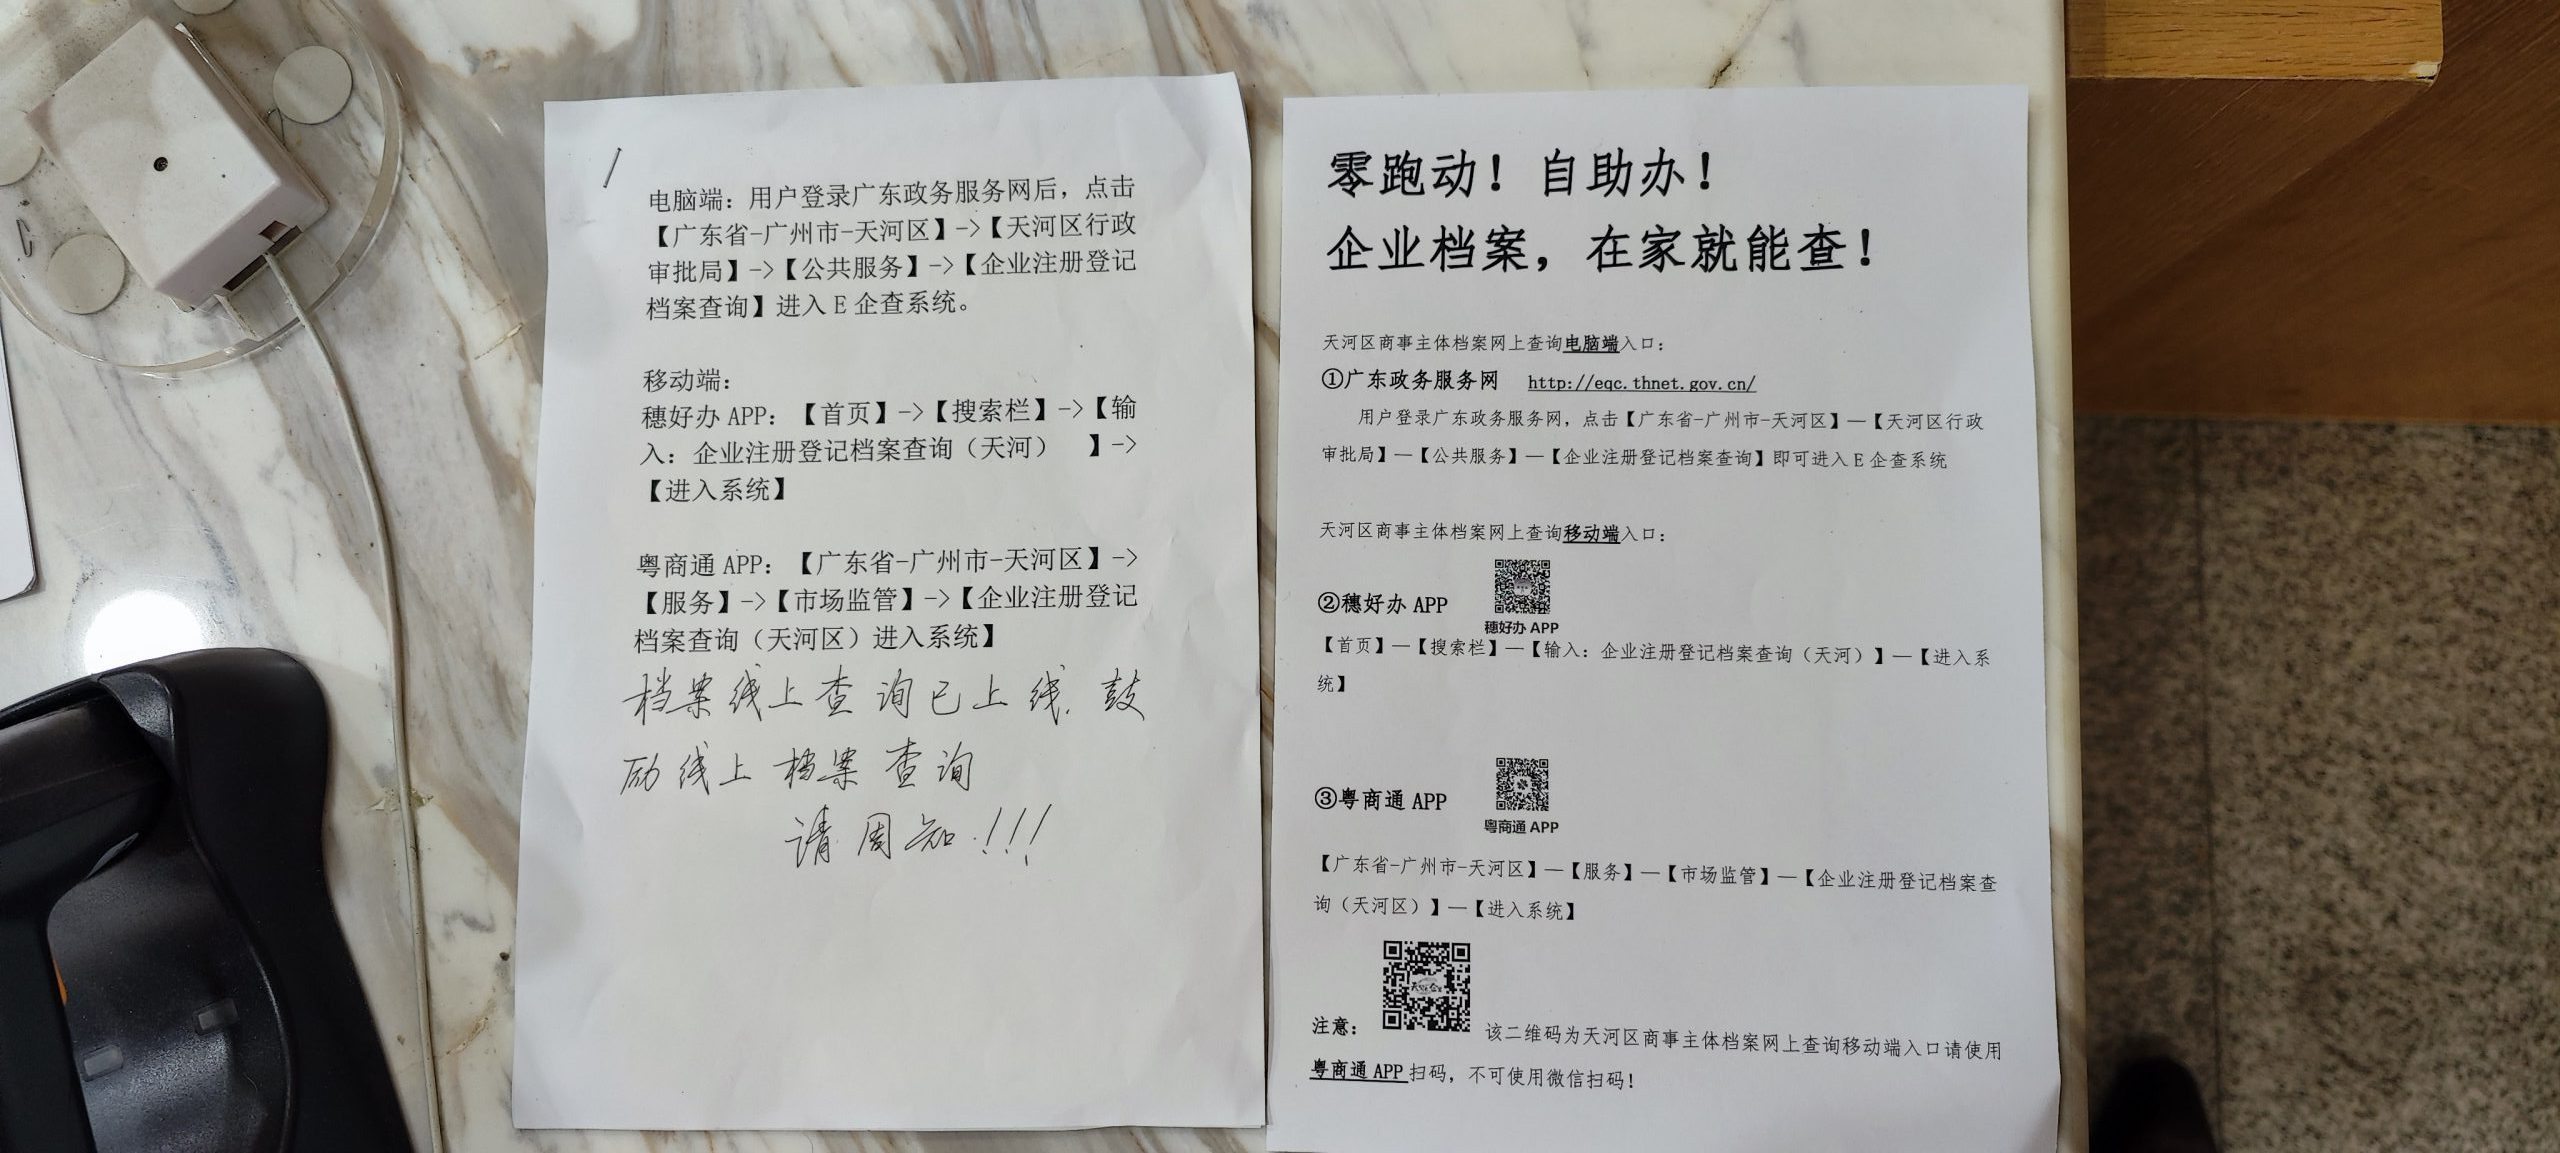 电脑端：用户登录广东政务服务网后，点击
【广东省-广州市-天河区】->【天河区行政
审批局】->【公共服务】->【企业注册登记
档案查询】进入 E 企查系统。
移动端：
穗好办 APP：【首页】->【搜索栏】->【输
入：企业注册登记档案查询（天河）　】->
【进入系统】
粤商通 APP：【广东省-广州市-天河区】->
【服务】->【市场监管】->【企业注册登记
档案查询（天河区）进入系统】
档案线上查询已上线，鼓
励线上档案查询
请周知！！！
零跑动！自助办！
企业档案，在家就能查！
天河区商事主体档案网上查询电脑端入口：
①广东政务服务网 http://eqc.thnet.gov.cn/
用户登录广东政务服务网，点击【广东省-广州市-天河区】—【天河区行政
审批局】—【公共服务】—【企业注册登记档案查询】即可进入 E 企查系统
天河区商事主体档案网上查询移动端入口：
②穗好办 APP
穗好办 APP
【首页】—【搜索栏】—【输入：企业注册登记档案查询（天河）】—【进入系
统】
③粤商通 APP
粤商通 APP
【广东省-广州市-天河区】—【服务】—【市场监管】—【企业注册登记档案查
询（天河区）】—【进入系统】
注意： 该二维码为天河区商事主体档案网上查询移动端入口请使用
粤商通 APP 扫码，不可使用微信扫码！